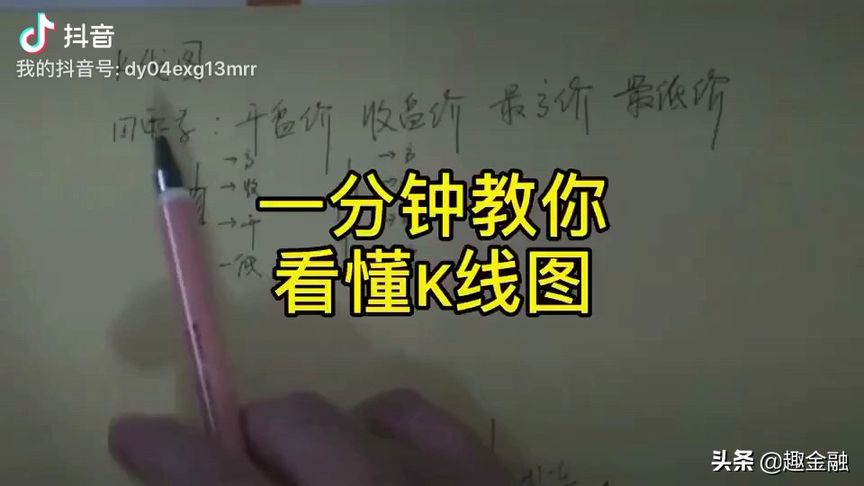 抖音
我的抖音号: dy04exg13mrr
K线图
四要素：开盘价 收盘价 最高价 最低价
→高
→收
→开
一低
→高
一分钟教你
看懂K线图
头条 @趣金融